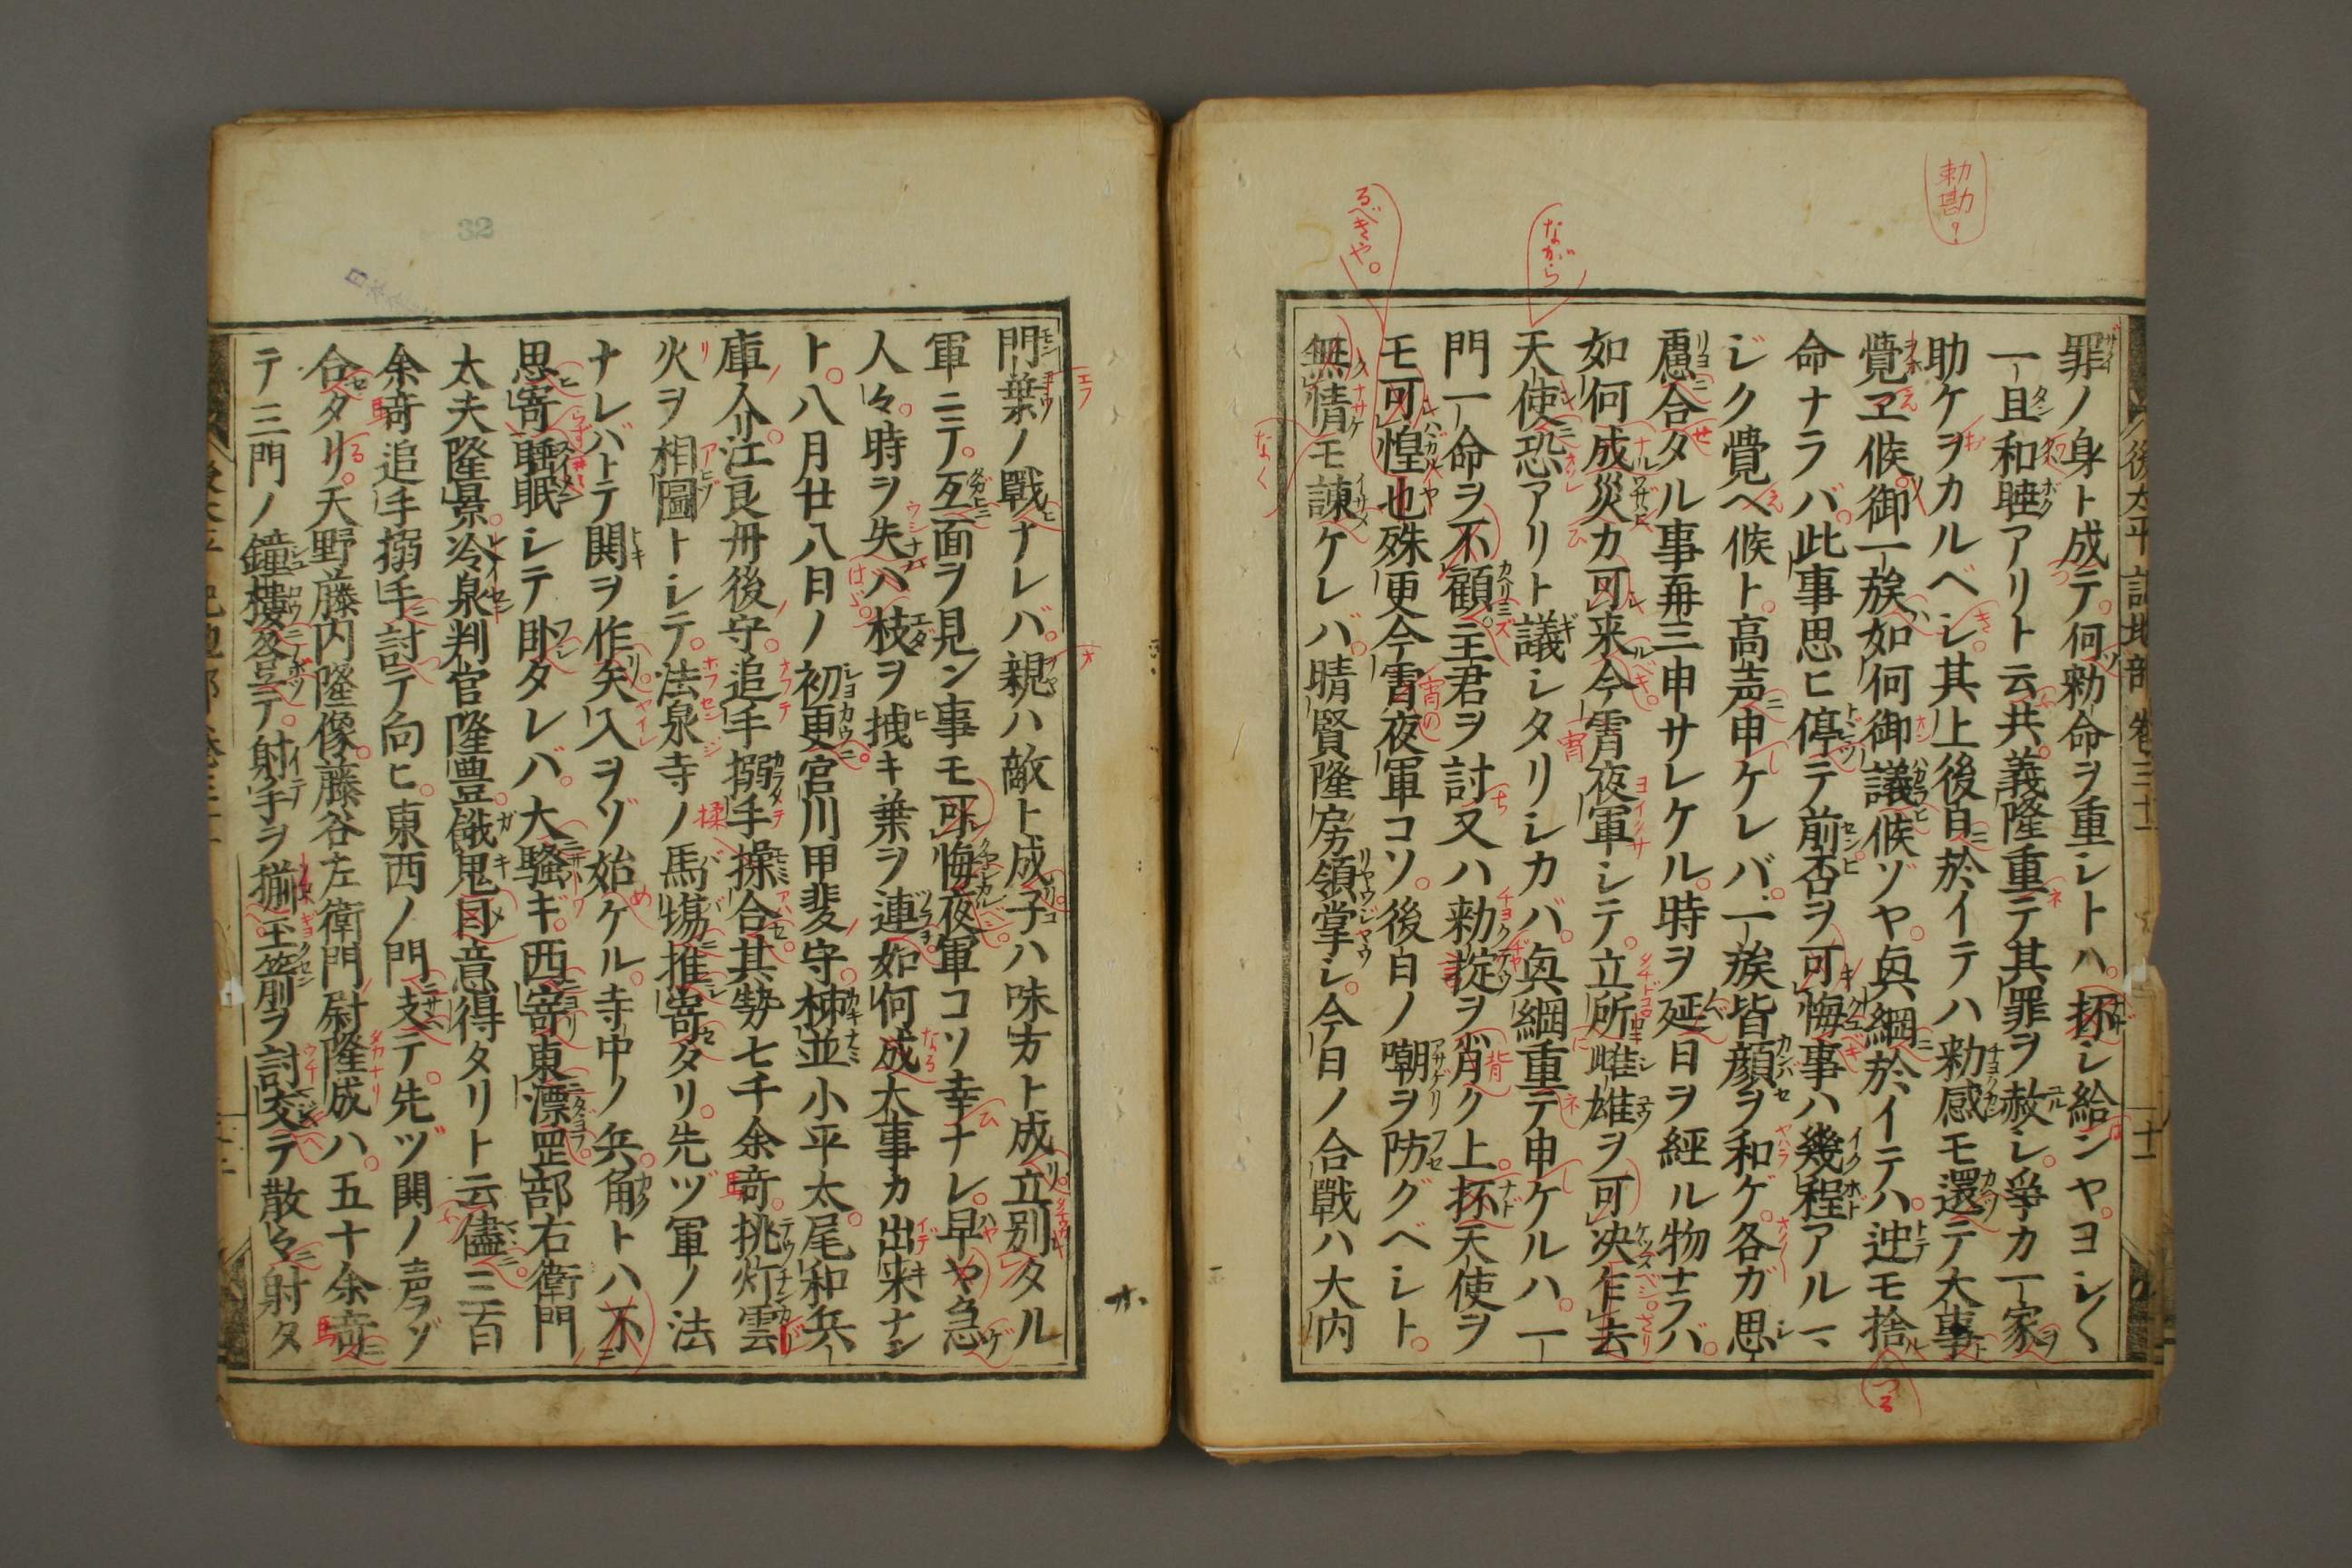 罪ノ身ト成テ何勅命ヲ重シトハ抔レ給ンヤヨシ〱
一且和睦アリト云共義隆重テ其罪ヲ赦レ争カ一家
助ケヲカルベシ其上後日於イテハ勅感モ還テ大事ト
覺ヱ候御一族如何御議候ゾヤ與綱於イテハ迚モ捨
命ナラバ此事思ヒ停テ前否ヲ可悔事ハ幾程アル一
ジク覺ヘ候ト高声申ケレバ一族皆顔ヲ和ゲ各ガ思
慮合タル事再三申サレケル時ヲ延日ヲ經ル物ナラバ
如何成災カ可来今霄夜軍シテ立所雌雄ヲ可决乍去
天使恐アリト議シタリシカバ與綱重テ申ケルハ一
門一命ヲ不顧主君ヲ討又ハ勅掟ヲ背ク上抔天使ヲ
モ可惶也殊更今霄夜軍コソ後日ノ嘲ヲ防グベシト
無情モ諫ケレバ晴賢隆房領掌シ今日ノ合戰ハ大内
門葉ノ戰ナレバ親ハ敵ト成子ハ味方ト成立別タル
軍ニテ互面ヲ見ン事モ可悔夜軍コソ幸ナレ早ヤ急
人々時ヲ失ハ枝ヲ拽キ葉ヲ連如何成大事カ出来ナン
ト八月廿八日ノ初更宮川甲斐守柹並小平太尾和兵
庫入江良丹後守追手搦手操合其勢七千余竒挑灯雲
火ヲ相圖トシテ法泉寺ノ馬塲推寄タリ先ヅ軍ノ法
ナレバトテ関ヲ作矢入ヲゾ始ケル寺中ノ兵角トハ不
思寄睡眠シテ卧タレバ大騒ギ西寄東漂罡部右衛門
太夫隆景冷泉判官隆豊餓鬼目意得タリト云儘三百
余竒追手搦手討テ向ヒ東西ノ門支テ先ヅ関ノ声ヲゾ
合タリ天野藤内隆像藤谷左衛門尉隆成ハ五十余竒
テ三門ノ鐘樓登テ射手ヲ揃竪箭ヲ討交テ散々射タ
勅勘?
ながら
るべきや。
なく
つる
後太平記地部 卷三十一
32